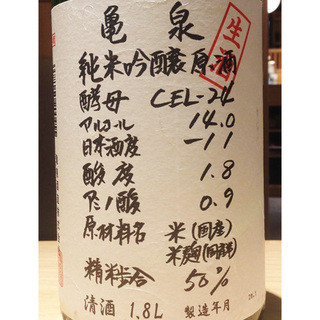 亀泉
生酒
純米吟醸原酒
酵母 CEL-24
アルコール 14.0
日本酒度 -11
酸度 1.8
アミノ酸 0.9
原材料名 米(国産)
米麹(国産米)
精米歩合 50%
清酒 1.8L 製造年月